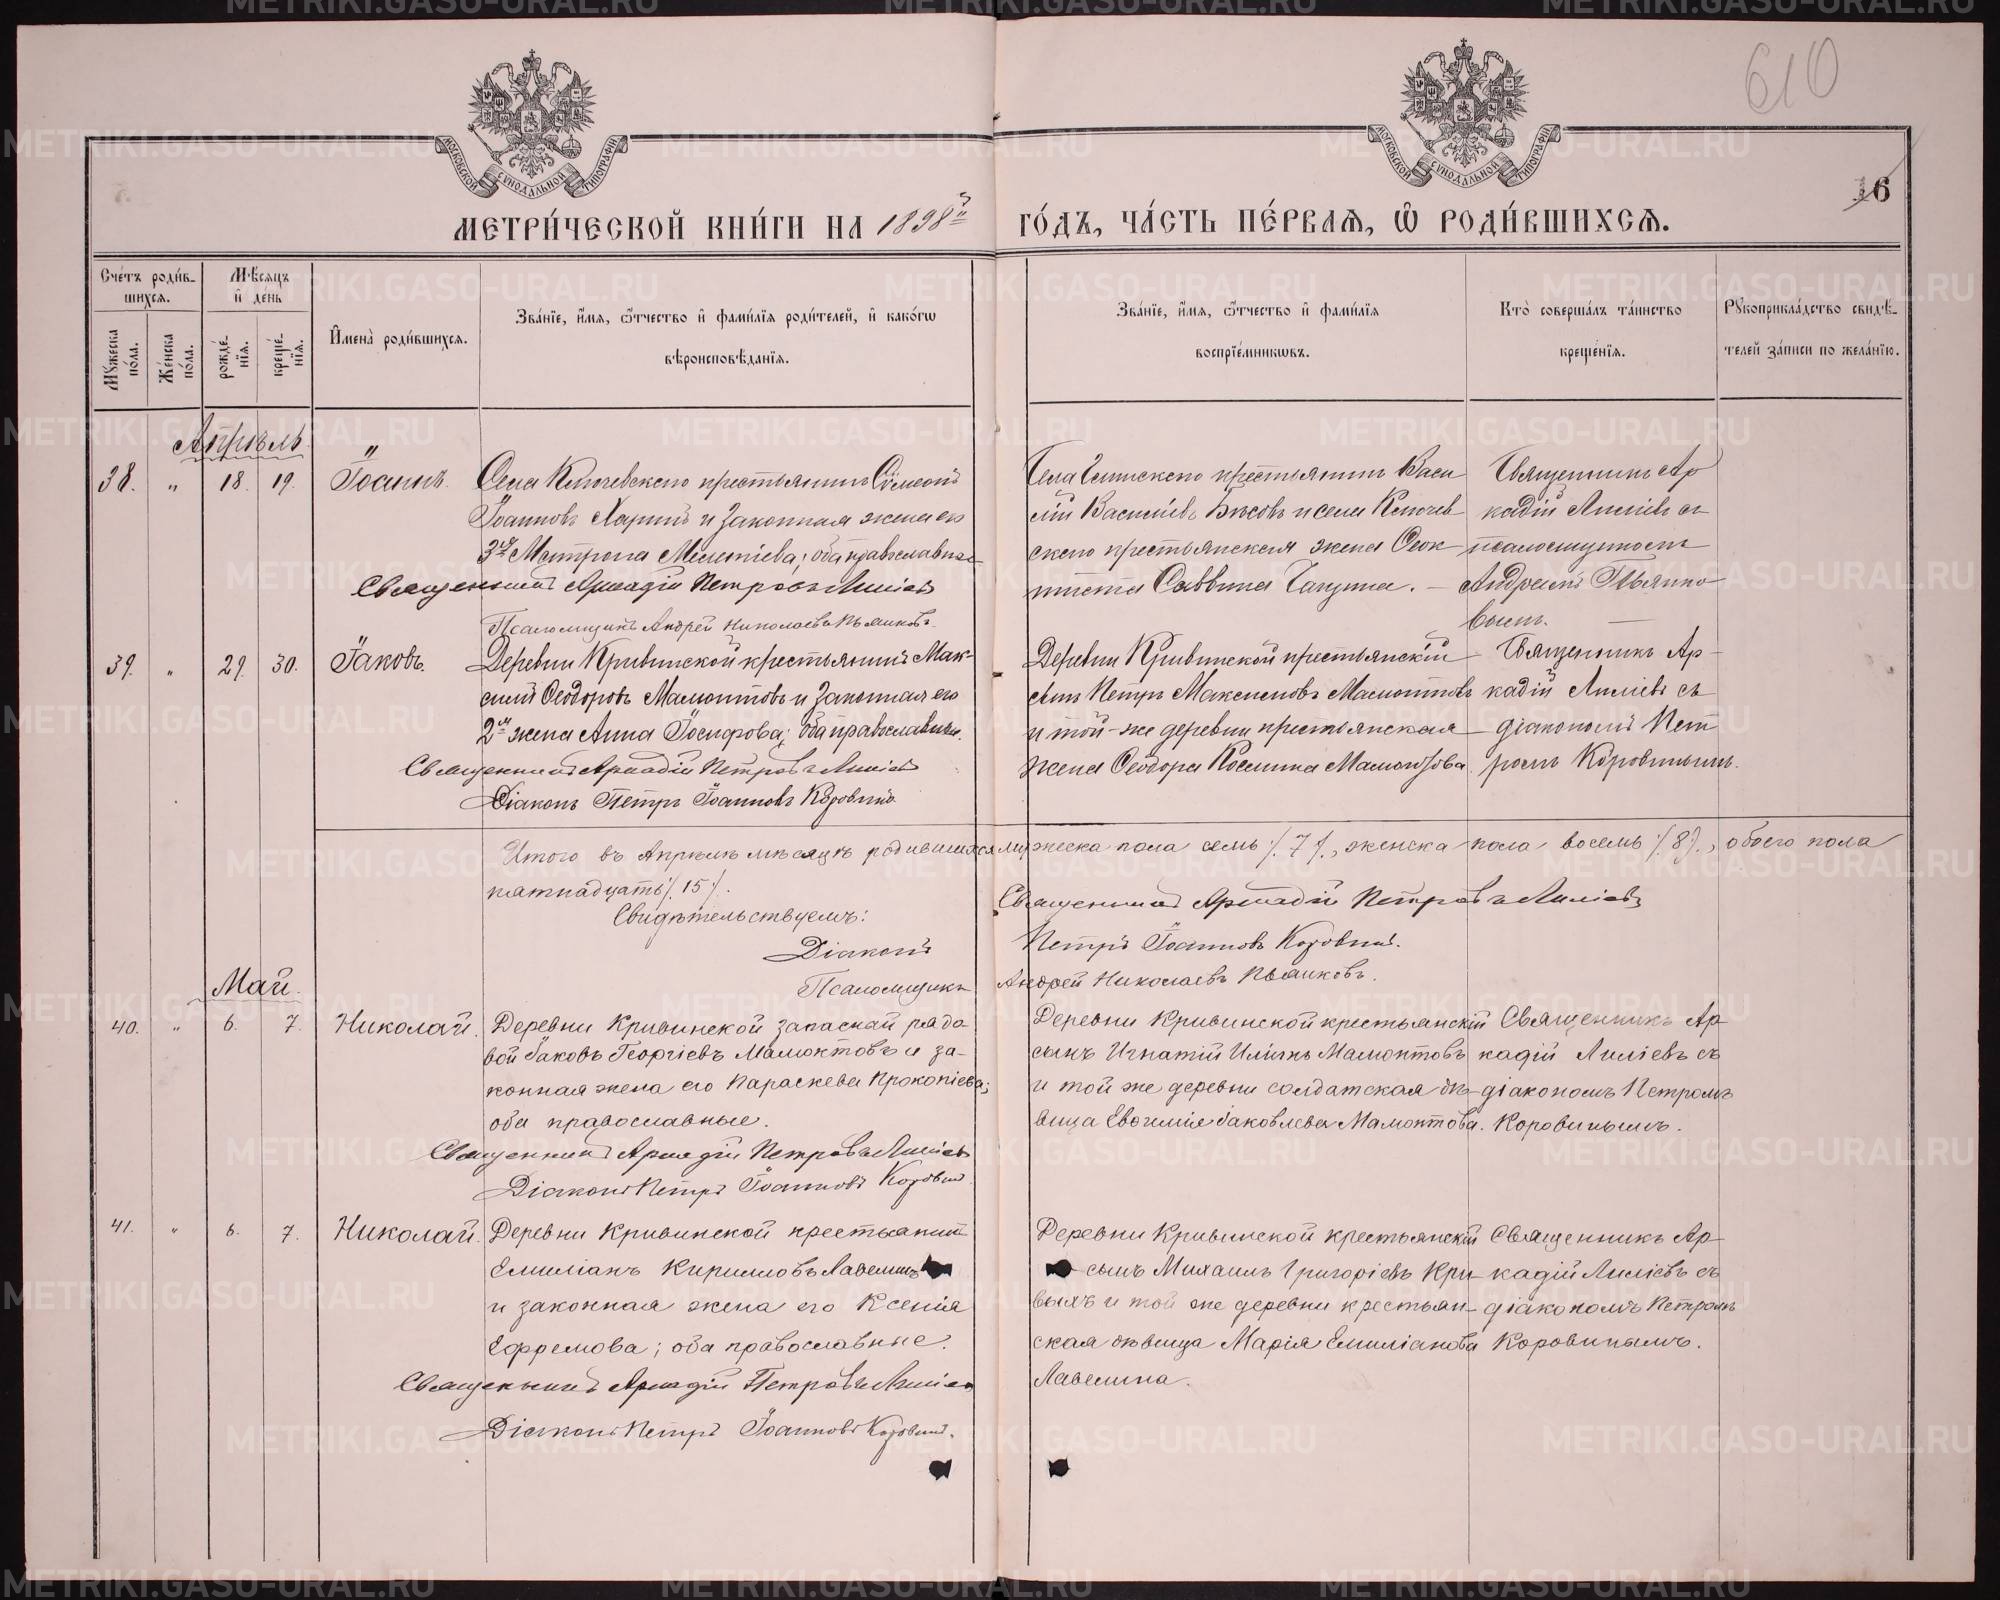 610
МОСКОВСКОЙ СУНОДАЛЬНОЙ ТИПОГРАФІИ
МОСКОВСКОЙ СУНОДАЛЬНОЙ ТИПОГРАФІИ
16
МЕТРИ́ЧЕСКОЙ КНИ́ГИ НА 1898й ГО́ДЪ, ЧА́СТЬ ПЕ́РВАѦ, Ѽ РОДИ́ВШИХСѦ.
Сче́тъ роди́в-
шихся.
Мꙋжеска по́ла.
Же́нска по́ла.
Мѣ́сяцъ
и́ де́нь
рожде́-нїя.
креще́-нїя.
И҆мена̀ роди́вшихся.
Зва́нїе, и҆́мя, ѻ҆́тчество и҆ фами́лїя роди́телей, и҆ како́гѡ
вѣроисповѣ́данїя.
Зва́нїе, и҆́мя, ѻ҆́тчество и҆ фами́лїя
воспрїе́мникѡвъ.
Кто̀ соверша́лъ та́инство
креще́нїя.
Рꙋкоприкла́дство свидѣ́-
телей за́писи по жела́нїю.
Апрѣль
38. " 18. 19. Іоаннъ.
Села Ключевскаго крестьянинъ Сѵмеонъ
Іоанновъ и законная жена его
3я Матрона Мелетіева; оба православные
Священникъ Аркадій Петровъ Лиліевъ
Псаломщикъ Андрей Николаевъ Пьянковъ.
Села крестьянинъ Васи
лій Васильевъ и села Ключев
скаго крестьянская жена Ѳеок
тиста Саввина. –
Священникъ Ар
кадій Лиліевъ съ
псаломщикомъ
Андреемъ Пьянко
вымъ.
39. " 29. 30. Іаковъ.
Деревни Кривинской крестьянинъ Мак-
симъ Ѳеодоровъ Мамонтовъ и законная его
2я жена Анна Іосифова; оба православные.
Священникъ Аркадій Петровъ Лиліевъ
Діаконъ Петръ Іоанновъ Коровинъ
Деревни Кривинской крестьянскій
сынъ Петръ Максимовъ Мамонтовъ
и той-же деревни крестьянская
жена Ѳеодора Космина Мамонтова.
Священникъ Ар-
кадій Лиліевъ съ
діакономъ Пет
ромъ Коровинымъ.
Итого въ Апрѣлѣ мѣсяцѣ родившихся мужеска пола семь /.7/., женска пола восемь /.8/., обоего пола
пятнадцать /.15/.
Свидѣтельствуемъ:
Священникъ Аркадій Петровъ Лиліевъ
Діаконъ Петръ Іоанновъ Коровинъ.
Псаломщикъ Андрей Николаевъ Пьянковъ.
Май.
40. " 6. 7. Николай.
Деревни Кривинской запасный рядо
вой Іаковъ Георгіевъ Мамонтовъ и за-
конная жена его Параскева Прокопіева;
оба православные.
Священникъ Аркадій Петровъ Лиліевъ
Діаконъ Петръ Іоанновъ Коровинъ.
Деревни Кривинской крестьянскій
сынъ Игнатій Ильинъ Мамонтовъ
и той же деревни солдатская дѣ-
вица Евѳимія Іаковлева Мамонтова.
Священникъ Ар
кадій Лиліевъ съ
діакономъ Петромъ
Коровинымъ.
41. " 6. 7. Николай.
Деревни Кривинской крестьянинъ
Емиліанъ Кирилловъ
и законная жена его Ксенія
Ефремова; оба православные.
Священникъ Аркадій Петровъ Лиліевъ
Діаконъ Петръ Іоанновъ Коровинъ.
Деревни Кривинской крестьянскій
сынъ Михаилъ Григоріевъ Кри-
выхъ и той же деревни крестьян-
ская дѣвица Марія Емиліанова
Священникъ Ар-
кадій Лиліевъ съ
діакономъ Петромъ
Коровинымъ.
METRIKI.GASO-URAL.RU